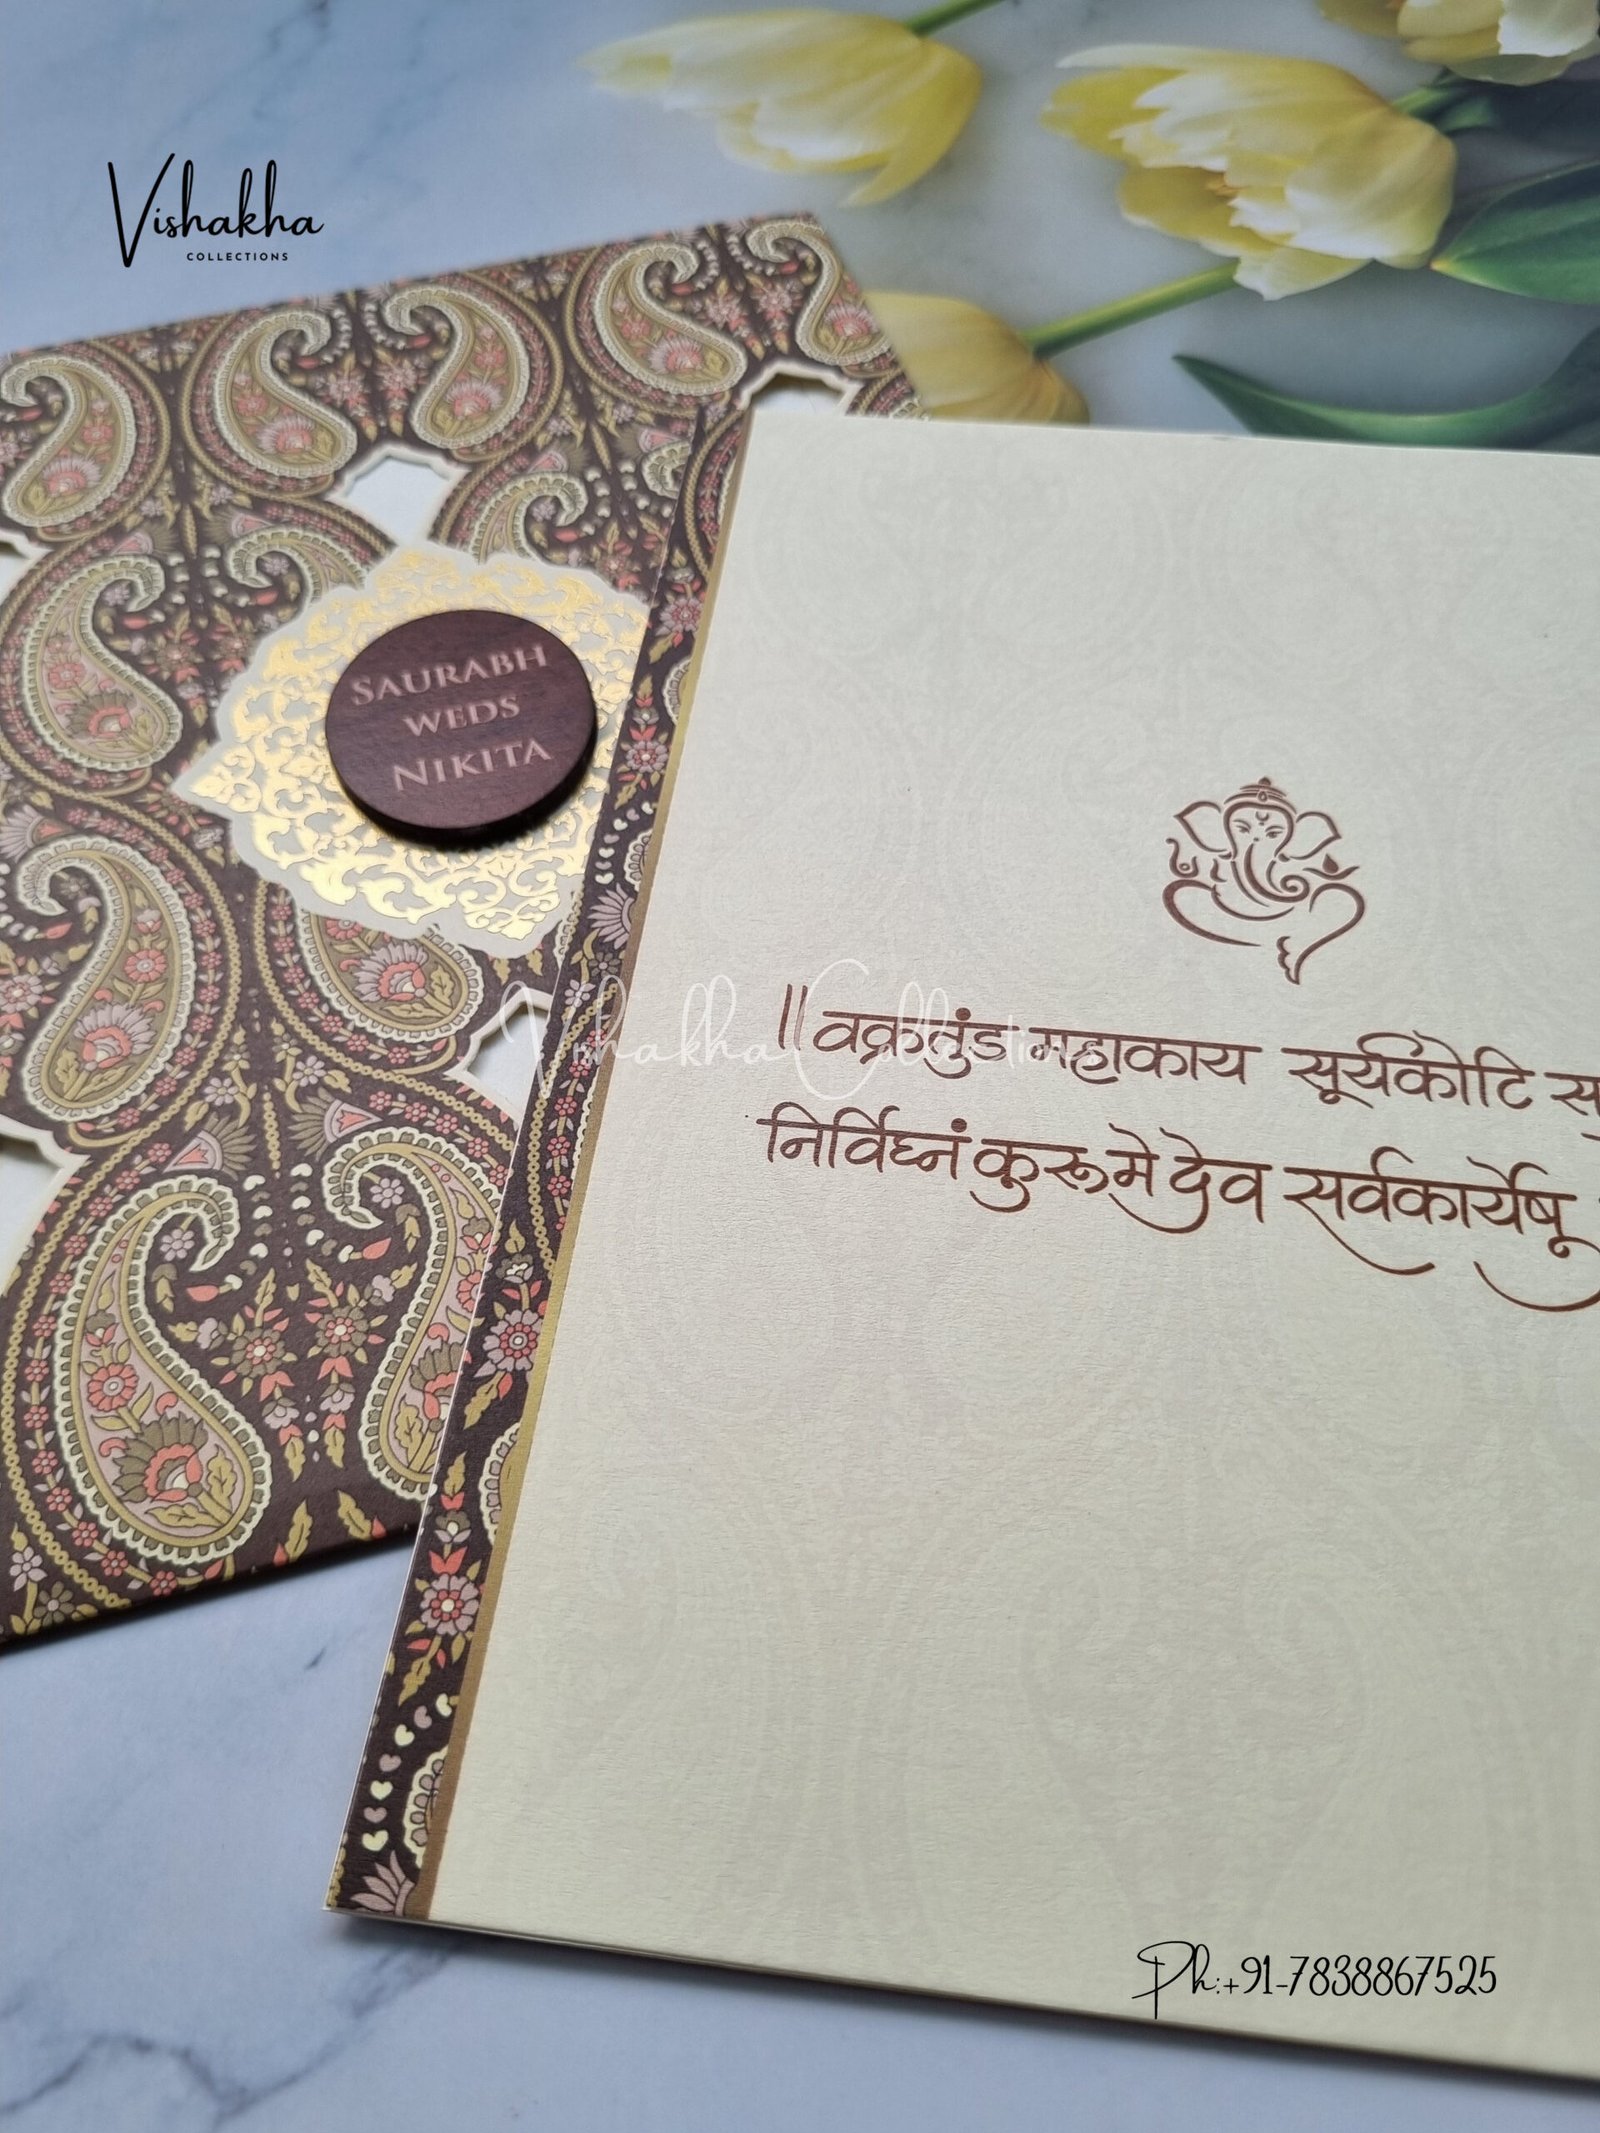 Vishakha
COLLECTIONS
SAURABH
WEDS
NIKITA
Vishakha Collections
॥ वक्रतुंड महाकाय सूर्यकोटि
निर्विघ्नं कुरू मे देव सर्वकार्येषू
Ph:+91-7838867525